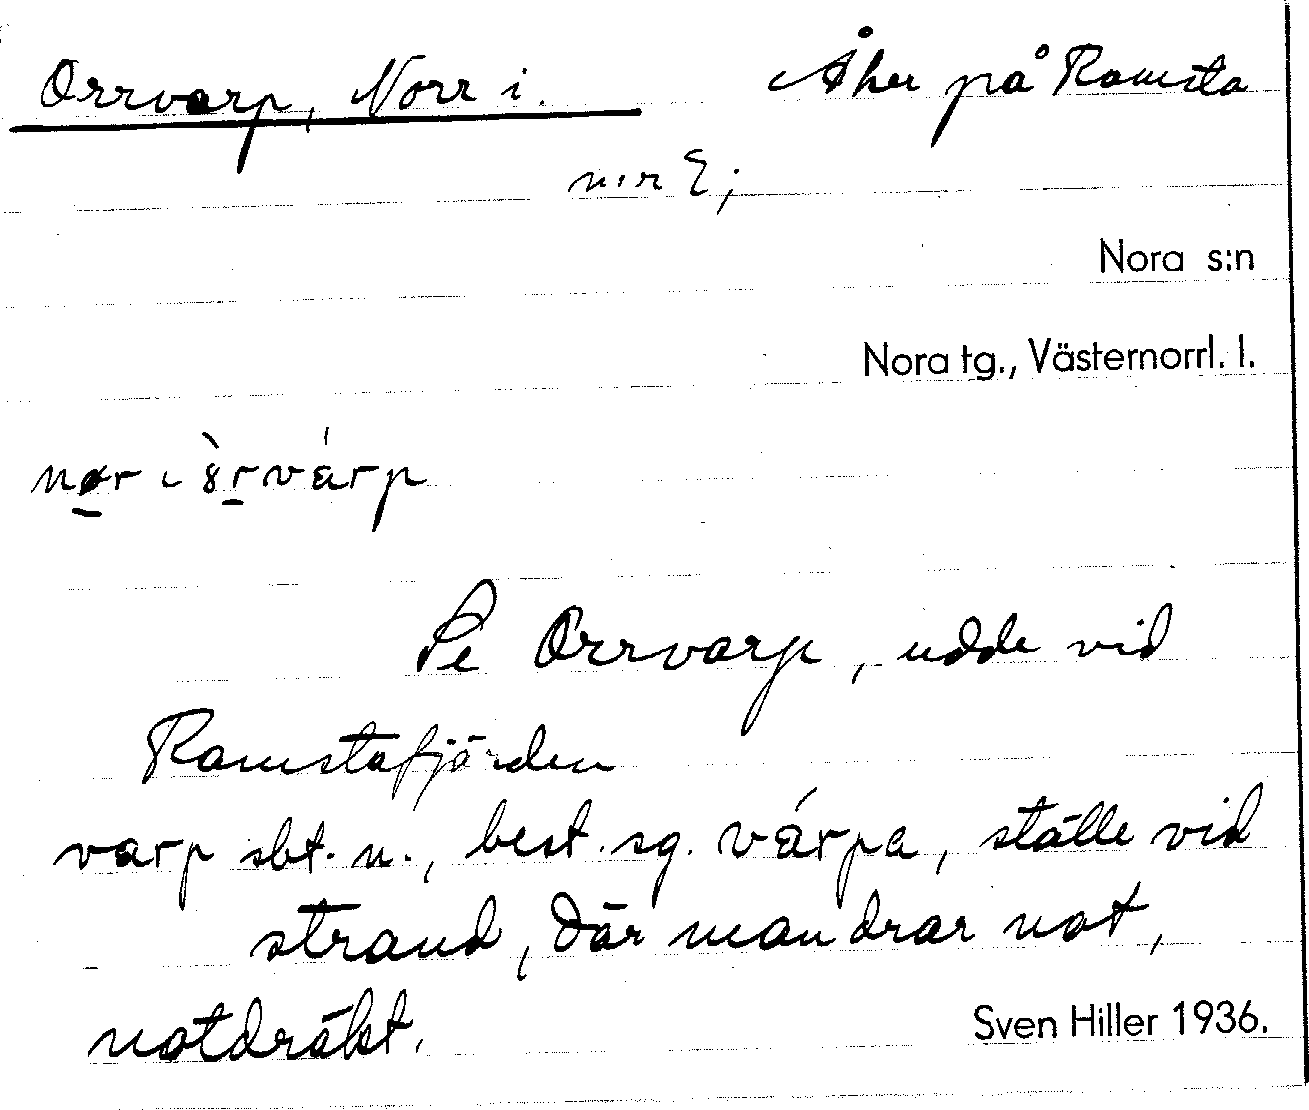 Orrvarp, Norr i. Åker på Ramsta
Nora s:n
Nora tg., Västernorrl. l.
Se Orrvarp, udde vid
Ramstafjärden
varp sbt. n., best. sg. várpa, ställe vid
strand, där man drar not,
notdräkt.
Sven Hiller 1936.